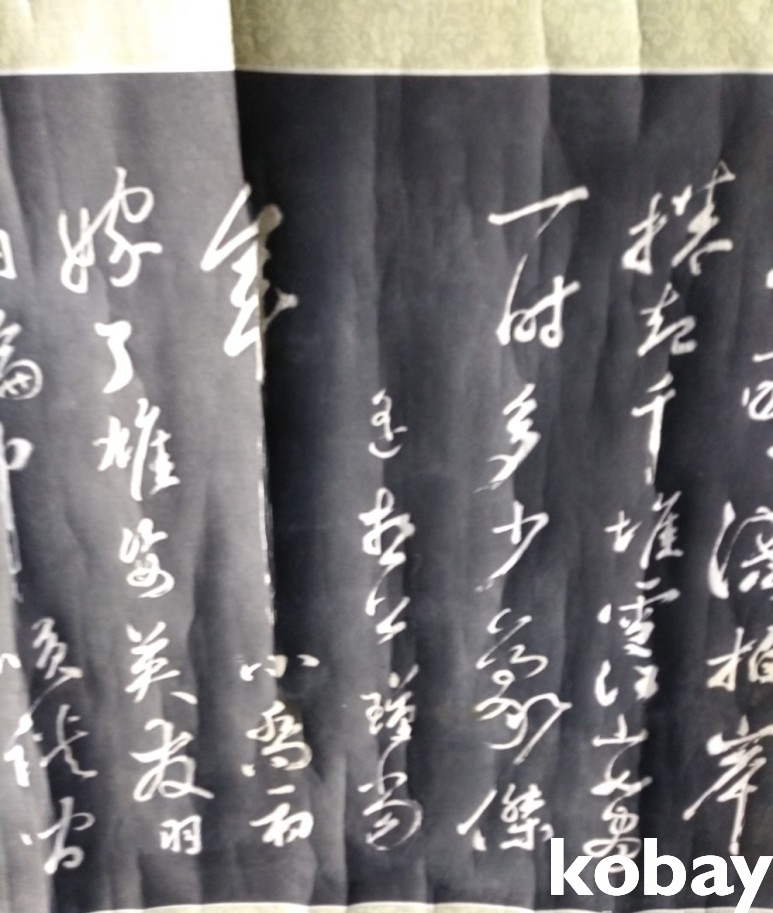 濤拍岸
捲起千堆雪江山如畫
一时多少豪傑
遙想公瑾當
年小喬初
嫁了雄姿英發羽
談間
kobay